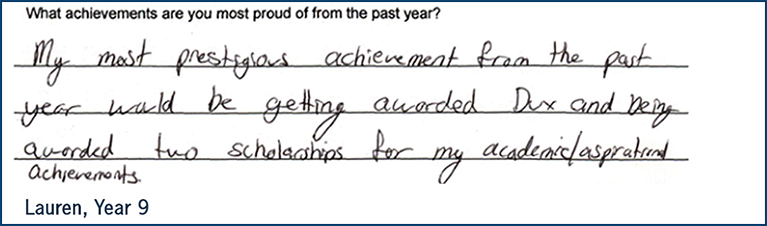 What achievements are you most proud of from the past year?
My most prestigious achievement from the past
year would be getting awarded Dux and being
awarded two scholarships for my academic/aspirational
achievements.
Lauren, Year 9